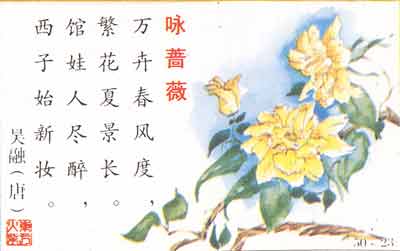 咏蔷薇
万卉春风度，
繁花夏景长。
馆娃人尽醉，
西子始新妆。
吴融（唐）
50-23